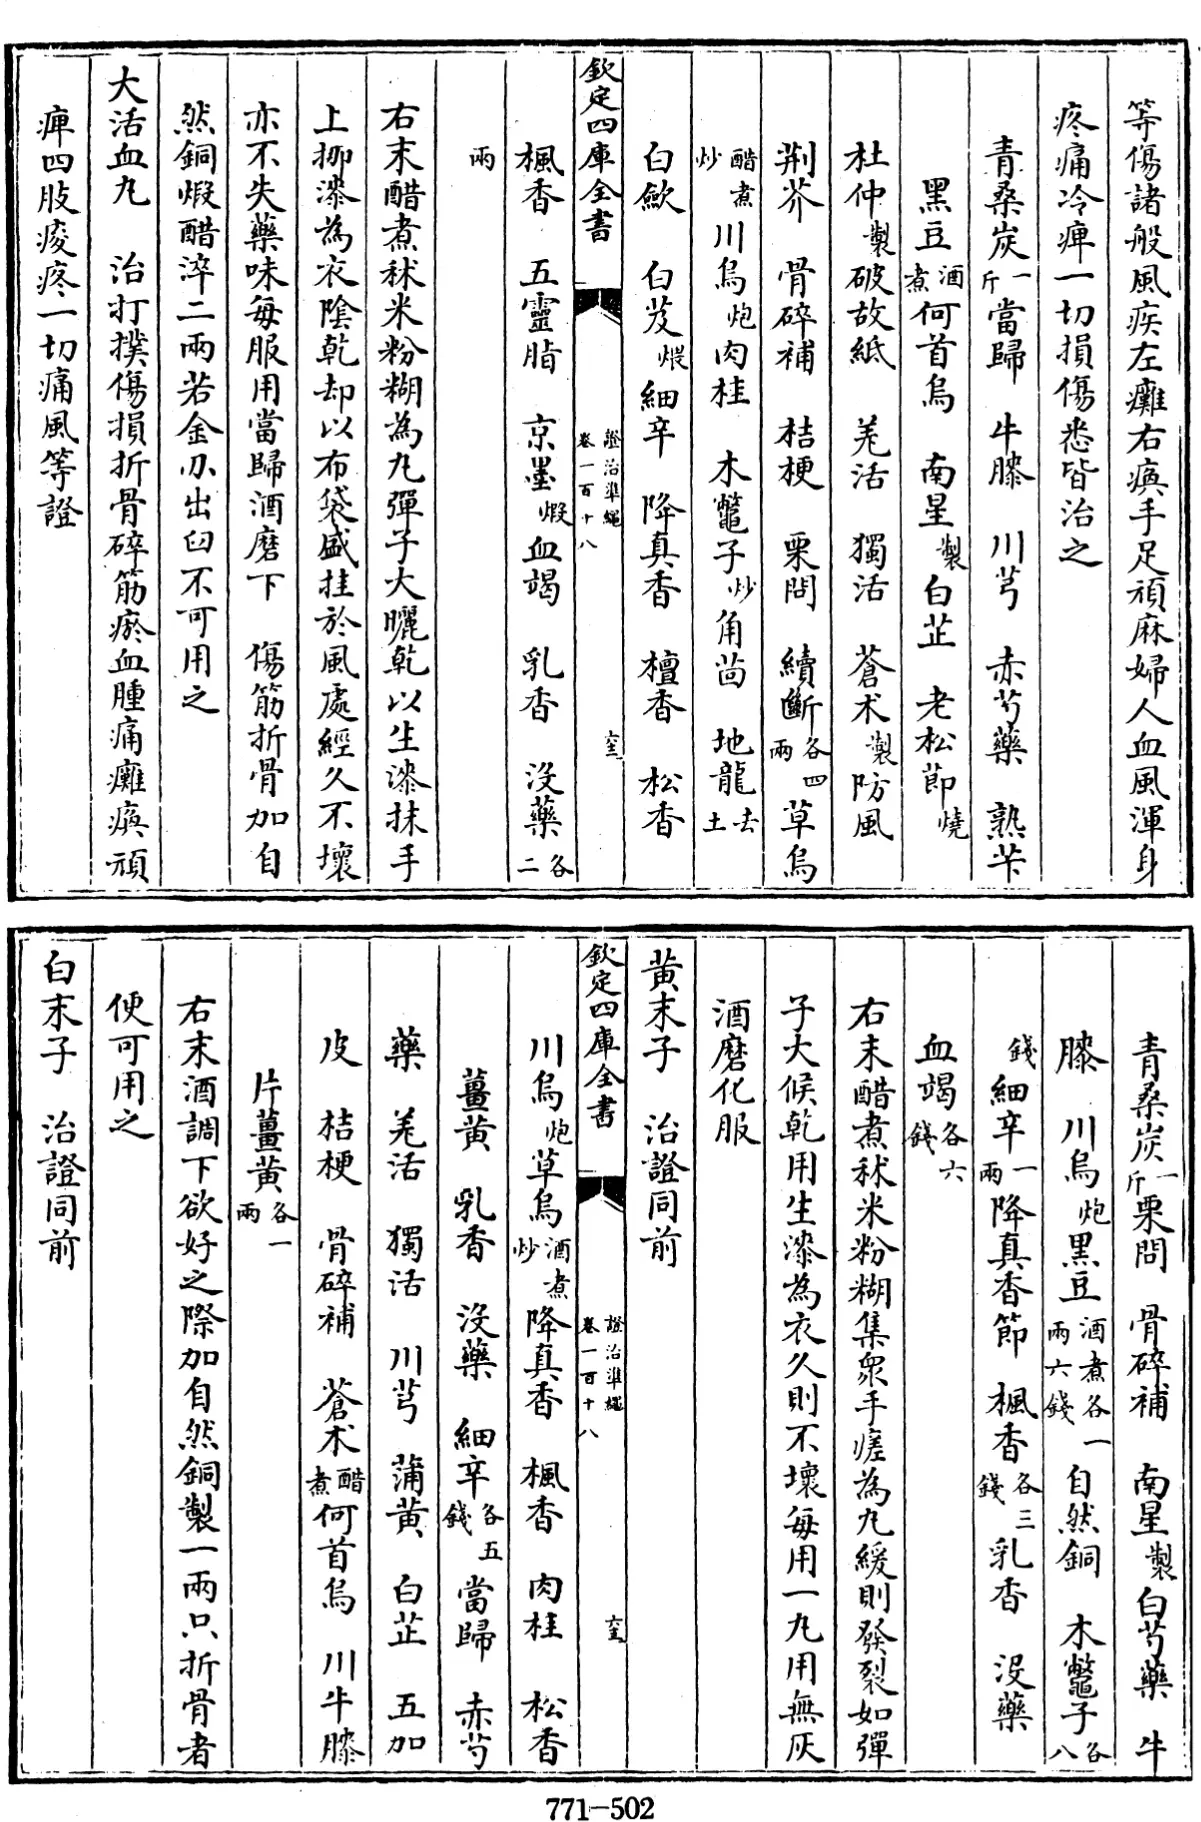 等傷諸般風疾左癱右瘓手足頑麻婦人血風渾身
疼痛冷痺一切損傷悉皆治之
青桑炭一斤當歸 牛膝 川芎 赤芍藥 熟苄
黑豆酒煮何首烏 南星製白芷 老松節燒
杜仲製破故紙 羌活 獨活 蒼术製防風
荆芥 骨碎補 桔梗 栗間 續斷各四兩草烏
醋煮炒川烏炮肉桂 木鼈子炒角茴 地龍去土
白歛 白芨煅細辛 降真香 檀香 松香
欽定四庫全書 證治準繩卷一百十八
楓香 五靈脂 京墨煅血竭 乳香 没藥各二
兩
右末醋煮秫米粉糊為丸彈子大曬乾以生漆抹手
上挪漆為衣陰乾却以布袋盛挂於風處經久不壞
亦不失藥味每服用當歸酒磨下 傷筋折骨加自
然銅煅醋淬二兩若金刅出臼不可用之
大活血丸 治打撲傷損折骨碎筋瘀血腫痛癱瘓頑
痺四肢痠疼一切痛風等證
青桑炭一斤栗間 骨碎補 南星製白芍藥 牛
膝 川烏炮黑豆酒煮各一兩六錢 自然銅 木鼈子各八
錢細辛一兩降真香節 楓香各三錢乳香 没藥
血竭各六錢
右末醋煮秫米粉糊集衆手嗟為丸緩則發裂如彈
子大候乾用生漆為衣久則不壞每用一丸用無灰
酒磨化服
黄末子 治證同前
欽定四庫全書 證治準繩卷一百十八
川烏炮草烏酒煮炒降真香 楓香 肉桂 松香
薑黄 乳香 没藥 細辛各五錢當歸 赤芍
藥 羌活 獨活 川芎 蒲黄 白芷 五加
皮 桔梗 骨碎補 蒼术醋煮何首烏 川牛膝
片薑黄各一兩
右末酒調下欲好之際加自然銅製一兩只折骨者
便可用之
白末子 治證同前
771-502